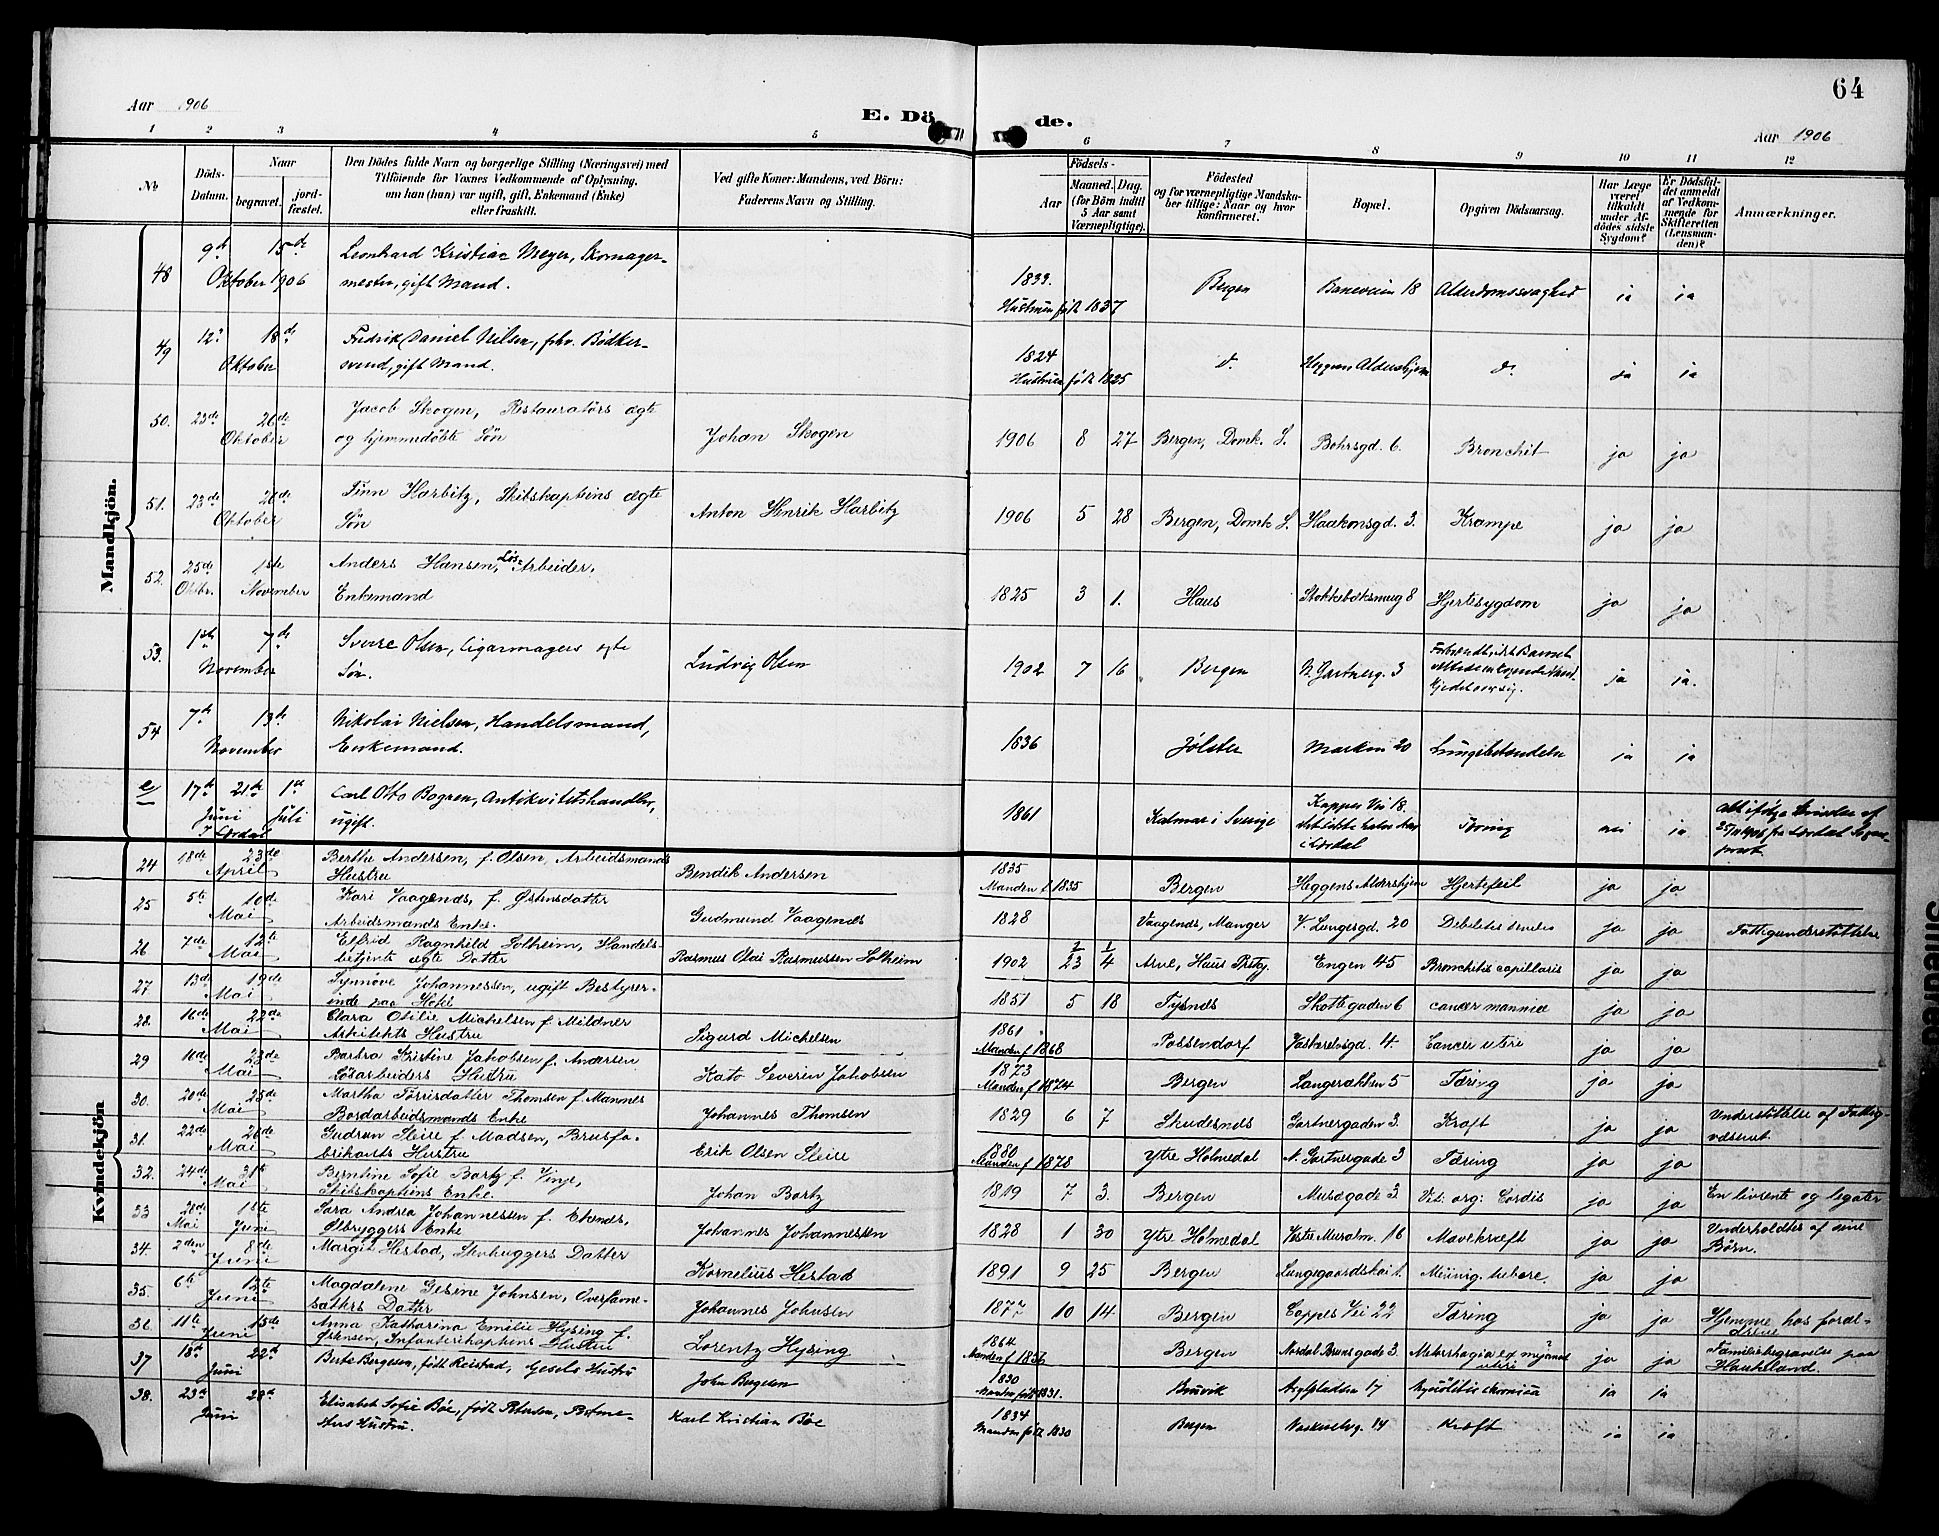 64
Aar 1906
E. Dö
de.
Aar 1906
1 2 3 4 5 6 7 8 9 10 11 12
No
Döds-Datum.
Naar
begravet.
jord-fæstet.
Den Dödes fulde Navn og borgerlige Stilling (Næringsvei) med
Tilföiende for Voxnes Vedkommende af Oplysning,
om han (hun) var ugift, gift, Enkemand (Enke)
eller fraskilt.
Ved gifte Koner: Mandens, ved Börn:
Faderens Navn og Stilling.
Födsels-
Aar
Maaned. Dag.
(for Börn indtil
5 Aar samt
Værnepligtige).
Födested
og for værnepligtige Mandska-
ber tillige: Naar og hvor
konfirmeret.
Bopæl.
Opgiven Dödsaarsag.
Har Læge
været
tilkaldt
under Af-
dödes sidste
Sygdom?
Er Dödsfal-
det anmeldt
af Vedkom-
mende for
Skifteretten
(Lensman-
den)?
Anmærkninger.
Mandkjön.
48 9de 15de Oktober 1906 Leonhard Kristian Meyer, Skomager-
mester, gift Mand. 1833. Hustruen født 1837 Bergen 18 Alderdomssvaghed ja ja
49 12 18de Oktober Fredrik Daniel Nilsen, fhv. Bødker-
svend, gift Mand. 1824 Hustruen født 1825 do Heggens Aldershjem do ja ja
50. 23de 26de Oktober Jacob Skogen, Restauratørs ægte
og hjemmedøbte Søn Johan Skogen 1906 8 27 Bergen, Domk. S. Bohrsgd. 6. Bronchit ja ja
51. 23de 26de Oktober Finn Harbitz, Skibskapteins ægte
Søn Anton Henrik Harbitz 1906 5 28 Bergen, Domk S. Haakonsgd. 3. Krampe ja ja
52. 25de Oktbr. 1ste November Anders Hansen, Løs-Arbeider.
Enkemand 1825 3 1. Haus 8 Hjertesygdom ja ja
53. 1ste 7de November Sverre Olsen, Cigarmagers ægte
Søn. Ludvig Olsen 1902 7 16 Bergen N. Gartnerg. 3 ja ja.
54 7de 13de November Nikolai Nielsen, Handelsmand,
Enkemand. 1836 Jølster Marken 20 Lungebetændelse ja ja
e 17de Juni 21de 1ste Juli Carl Otto Bogren, Antikvitetshandler,
ugift. 1861 Kalmar i Sverige Kappes Vei 18. Tæring nei ja
Kvindekjön
24 18de 23de April Berthe Andersen, f. Olsen, Arbeidsmands
Hustru Bendik Andersen 1835 Manden f. 1835 Bergen Heggens Aldershjem Hjertefeil ja ja
25 5te 10de Mai Kari Vaagenes, f. Østensdatter
Arbeidsmands Enke. Gudmund Vaagenes 1828 Vaagenes, Manger V. Lungegd. 20 Debilitas senilis ja ja Fattigunderstøttelse
26 7de 12te Mai Elfrid Ragnhild Solheim, Handels-
betjents ægte Datter Rasmus Olai Rasmussen Solheim 1902 2/23 1/4 Arne, Haus Prstgj. Engen 45 Bronchitis capillaris ja ja
27 13de 19de Mai Synnøve Johannessen, ugift Bestyrer-
inde paa Hotel 1851 5 18 Tysnes Skottegaden 6 cancer mammæ ja ja
28. 16de 22de Mai Clara Otilie Michelsen f. Mildner
Arkitekts Hustru Sigurd Michelsen 1861 Manden f. 1868 Possendorf Vaskerelvsgd. 4. Cancer uteri ja ja
29 16de 23de Mai Barbra Kristine Jakobsen f. Andersen
Løsarbeiders Hustru Kato Severin Jakobsen 1873 Manden f. 1874 Bergen 5 Tæring ja ja
30. 20de 25de Mai Martha Torrisdatter Thomsen f. Mannes
Bordarbeidsmands Enke Johannes Thomsen 1829 6 7 Skudesnes Gartnergaden 3. Kræft ja ja Understøttelse af Fattig-
væsenet.
31. 22de 26de Mai Gudrun Sleire f. Madsen, Brusfa-
brikants Hustru Erik Olsen Sleire 1880 Manden f. 1878 Ytre Holmedal N. Gartnergade 3 Tæring ja ja
32. 24de 31te Mai Berntine Sofie Bartz f. Vinje,
Skibskapteins Enke. Johan Bartz 1819 7 3. Bergen Muségade 3. Vit: org: Cordis ja ja En livrente og legater
33 28de Mai 1ste Juni Sara Andrea Johannessen f. Ekenes,
Ølbryggers Enke Johannes Johannessen 1828 1 30 Ytre Holmedal Vestre Muralm. 16 Mavekræft ja ja Underholdtes af sine
Børn.
34. 2den 8de Juni Margit Hestad, Stenhuggers Datter
Kornelius Hestad 1891 9 25 Bergen Lungegaardskai 1. Mening. tuberc. ja ja
35. 6te 12te Juni Magdalene Gesine Johnsen,
Datter Johannes Johnsen 1877 10 14 Bergen Coppes Vei 22 Tæring ja ja Hjemme hos foræl-
drene
36. 11te 15de Juni Anna Katharina Emilie Hysing f.
Østensen, Infanterikapteins Hustru Lorentz Hysing 1864. Manden f. 1856 Bergen Nordal Brunsgade 3. Metorrhagia ex uteri ja ja Familiebegravelse paa
Haukeland.
37 18de 22de Juni Berte Bergesen, født Reistad, Gesels Hustru
John Bergesen 1830 Manden født 1831. Bruvik 17 chronica ja ja
38. 23de 28de Juni Elisabet Sofie Bøe, født Petersen,
Hustru. Karl Kristian Bøe 1834 Manden født 1830 Bergen Vaskerelvg. 14 Kræft ja ja